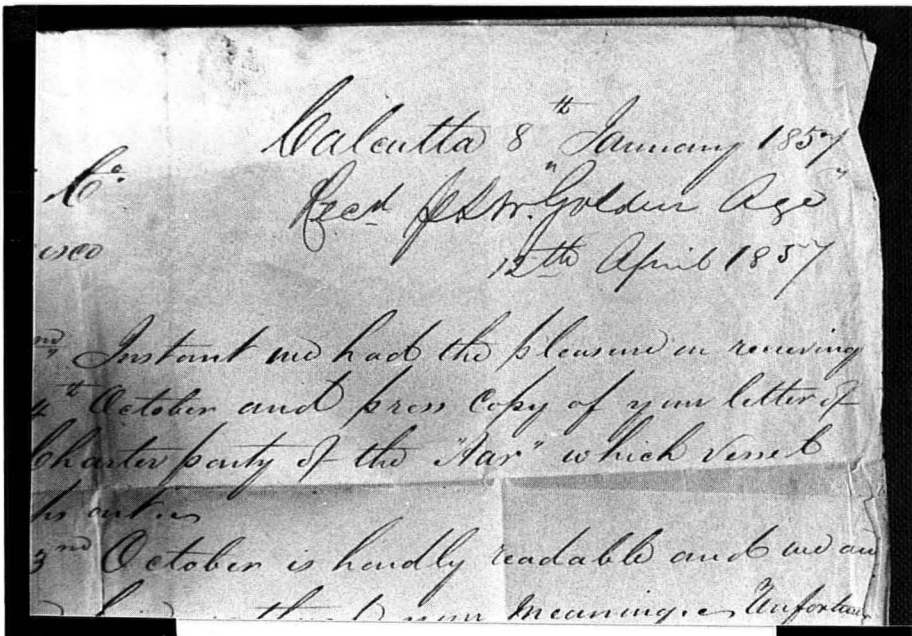 Calcutta 8th January 1857
Co.
Recd p S Str. "Golden Age"
isco
12th April 1857
nd Instant we had the pleasure in receiving
4th October and press Copy of your letter of
Charter party of the "Aar" which Vessel
hs out.
3nd October is hardly readable and we are
your Meaning. Unfortun